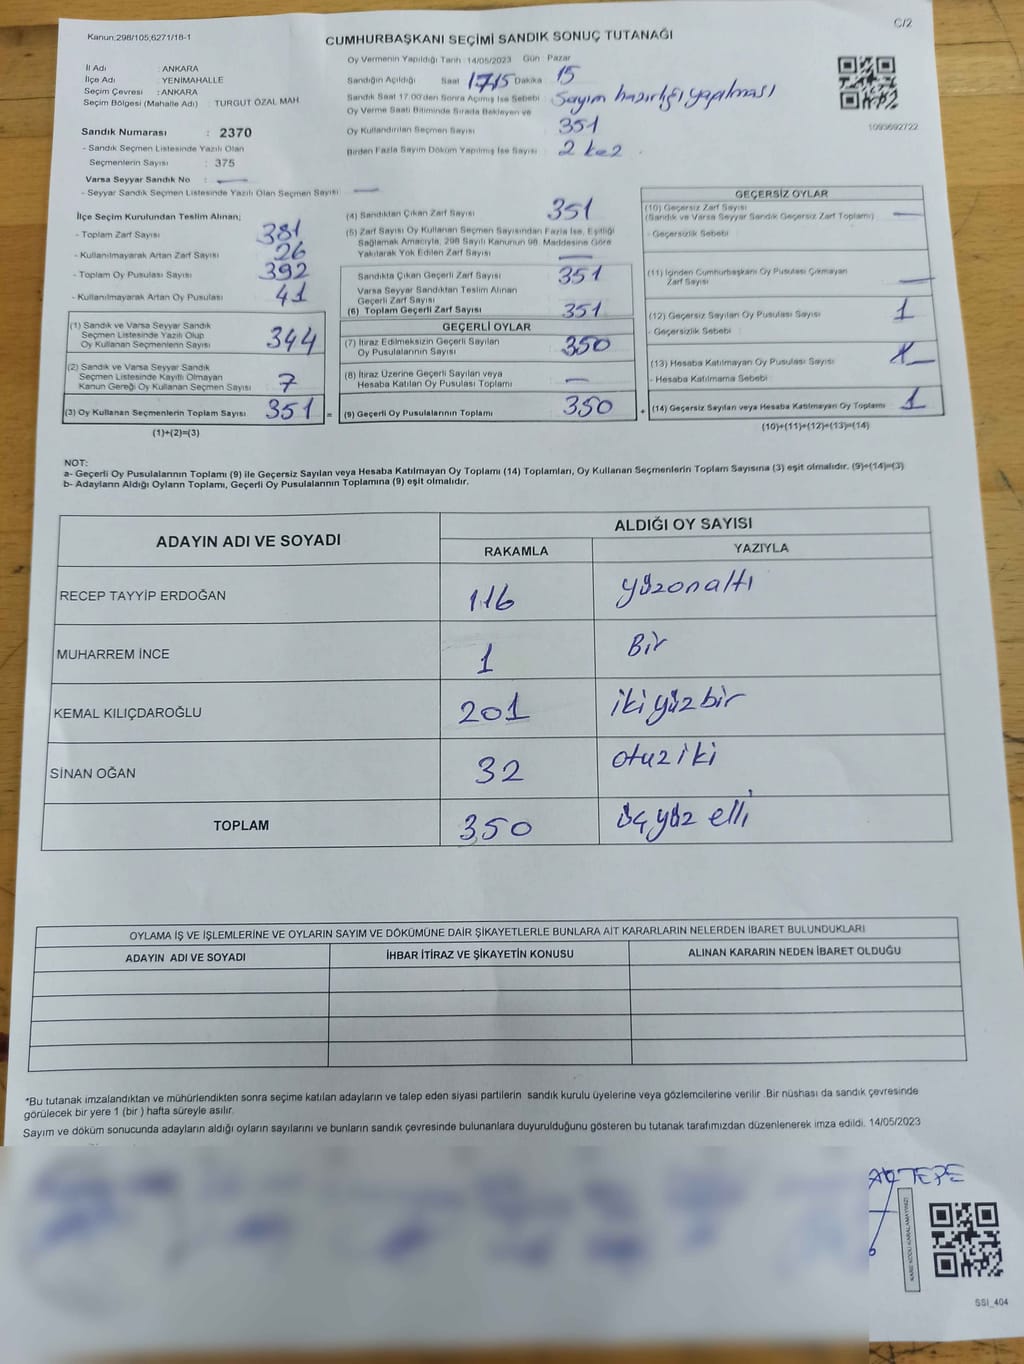 C/2
Kanun:298/105,6271/18-1
CUMHURBAŞKANI SEÇİMİ SANDIK SONUÇ TUTANAĞI
İl Adı : ANKARA
İlçe Adı : YENİMAHALLE
Seçim Çevresi : ANKARA
Seçim Bölgesi (Mahalle Adı) TURGUT ÖZAL MAH
Oy Vermenin Yapıldığı Tarih 14/05/2023 Gün Pazar
Sandığın Açıldığı Saat 1715 Dakika 15
Sandık Saat 17:00'den Sonra Açılmış İse Sebebi Sayım hazırlığı yapılması
Oy Verme Saati Bitiminde Sırada Bekleyen ve
Oy Kullandırılan Seçmen Sayısı 351
Birden Fazla Sayım Döküm Yapılmış İse Sayısı 2 kez
1093692722
Sandık Numarası : 2370
- Sandık Seçmen Listesinde Yazılı Olan
Seçmenlerin Sayısı : 375
Varsa Seyyar Sandık No : —
- Seyyar Sandık Seçmen Listesinde Yazılı Olan Seçmen Sayısı —
İlçe Seçim Kurulundan Teslim Alınan;
- Toplam Zarf Sayısı 381
- Kullanılmayarak Artan Zarf Sayısı 26
- Toplam Oy Pusulası Sayısı 392
- Kullanılmayarak Artan Oy Pusulası 41
(1) Sandık ve Varsa Seyyar Sandık
Seçmen Listesinde Yazılı Olup
Oy Kullanan Seçmenlerin Sayısı 344
(2) Sandık ve Varsa Seyyar Sandık
Seçmen Listesinde Kayıtlı Olmayan
Kanun Gereği Oy Kullanan Seçmen Sayısı 7
(3) Oy Kullanan Seçmenlerin Toplam Sayısı 351 =
(1)+(2)=(3)
(4) Sandıktan Çıkan Zarf Sayısı 351
(5) Zarf Sayısı Oy Kullanan Seçmen Sayısından Fazla İse, Eşitliği
Sağlamak Amacıyla, 298 Sayılı Kanunun 98. Maddesine Göre
Yakılarak Yok Edilen Zarf Sayısı —
Sandıkta Çıkan Geçerli Zarf Sayısı 351
Varsa Seyyar Sandıktan Teslim Alınan
Geçerli Zarf Sayısı
(6) Toplam Geçerli Zarf Sayısı 351
GEÇERLİ OYLAR
(7) İtiraz Edilmeksizin Geçerli Sayılan
Oy Pusulalarının Sayısı 350
(8) İtiraz Üzerine Geçerli Sayılan veya
Hesaba Katılan Oy Pusulası Toplamı —
(9) Geçerli Oy Pusulalarının Toplamı 350 +
GEÇERSİZ OYLAR
(10) Geçersiz Zarf Sayısı
(Sandık ve Varsa Seyyar Sandık Geçersiz Zarf Toplamı) —
- Geçersizlik Sebebi
(11) İçinden Cumhurbaşkanı Oy Pusulası Çıkmayan
Zarf Sayısı —
(12) Geçersiz Sayılan Oy Pusulası Sayısı 1
- Geçersizlik Sebebi :
(13) Hesaba Katılmayan Oy Pusulası Sayısı —
- Hesaba Katılmama Sebebi
(14) Geçersiz Sayılan veya Hesaba Katılmayan Oy Toplamı 1
(10)+(11)+(12)+(13)=(14)
NOT:
a- Geçerli Oy Pusulalarının Toplamı (9) ile Geçersiz Sayılan veya Hesaba Katılmayan Oy Toplamı (14) Toplamları, Oy Kullanan Seçmenlerin Toplam Sayısına (3) eşit olmalıdır. (9)+(14)=(3)
b- Adayların Aldığı Oyların Toplamı, Geçerli Oy Pusulalarının Toplamına (9) eşit olmalıdır.
ADAYIN ADI VE SOYADI ALDIĞI OY SAYISI
RAKAMLA YAZIYLA
RECEP TAYYİP ERDOĞAN 116 yüzonaltı
MUHARREM İNCE 1 Bir
KEMAL KILIÇDAROĞLU 201 ikiyüzbir
SİNAN OĞAN 32 otuziki
TOPLAM 350 üçyüz elli
OYLAMA İŞ VE İŞLEMLERİNE VE OYLARIN SAYIM VE DÖKÜMÜNE DAİR ŞİKAYETLERLE BUNLARA AİT KARARLARIN NELERDEN İBARET BULUNDUKLARI
ADAYIN ADI VE SOYADI İHBAR İTİRAZ VE ŞİKAYETİN KONUSU ALINAN KARARIN NEDEN İBARET OLDUĞU
*Bu tutanak imzalandıktan ve mühürlendikten sonra seçime katılan adayların ve talep eden siyasi partilerin sandık kurulu üyelerine veya gözlemcilerine verilir .Bir nüshası da sandık çevresinde
görülecek bir yere 1 (bir ) hafta süreyle asılır.
Sayım ve döküm sonucunda adayların aldığı oyların sayılarını ve bunların sandık çevresinde bulunanlara duyurulduğunu gösteren bu tutanak tarafımızdan düzenlenerek imza edildi. 14/05/2023
AÇTEPE
KARE KODU KARALAMAYINIZ!
SSI_404